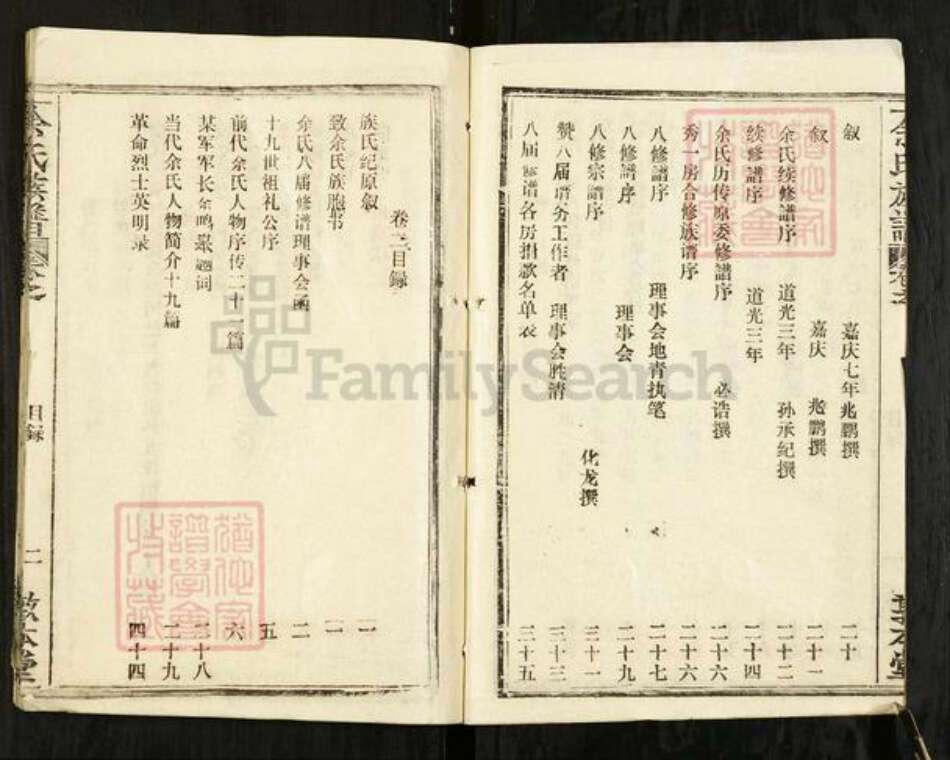 叙 嘉庆七年兆鹏撰 二十
叙 嘉庆 兆鹏撰 二十一
余氏续修谱序 道光三年 孙承纪撰 二十二
续修谱序 道光三年 二十四
余氏历传原委修谱序 必诰撰 二十六
秀一房合修族谱序 二十六
八修谱序 理事会地青执笔 二十七
八修谱序 理事会 二十九
八修宗谱序 化龙撰 三十一
赞八届谱务工作者 理事会胜清 三十三
八届修谱各房捐款名单表 三十五
卷二目录
族氏纪原叙 一
致余氏族胞书 一
余氏八届修谱理事会函 二
十九世祖礼公序 五
前代余氏人物序传二十一篇 六
某军军长余鸣歌题词 二十八
当代余氏人物简介十九篇 二十九
革命烈士英明录 四十四
余氏族谱
目录
二
敦本堂
FamilySearch